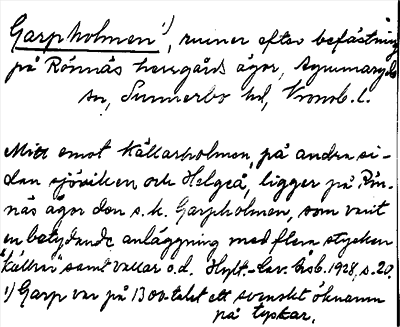 Garpholmen¹), ruiner efter befästning
på Rönnäs herrgårds ägor, Agunnaryds
sn, Sunnerbo hd, Kronob. l.
Mitt emot Källarholmen, på andra si-
dan sjöviken och Helgeå, ligger på Rön-
näs ägor den s.k. Garpholmen, som varit
en betydande anläggning med flera stycken
"källrar" samt vallar o.d. Hylt.-Cav. Årsb. 1928, s. 20.
¹) Garp var på 1300-talet ett svenskt öknamn
på tyskar.